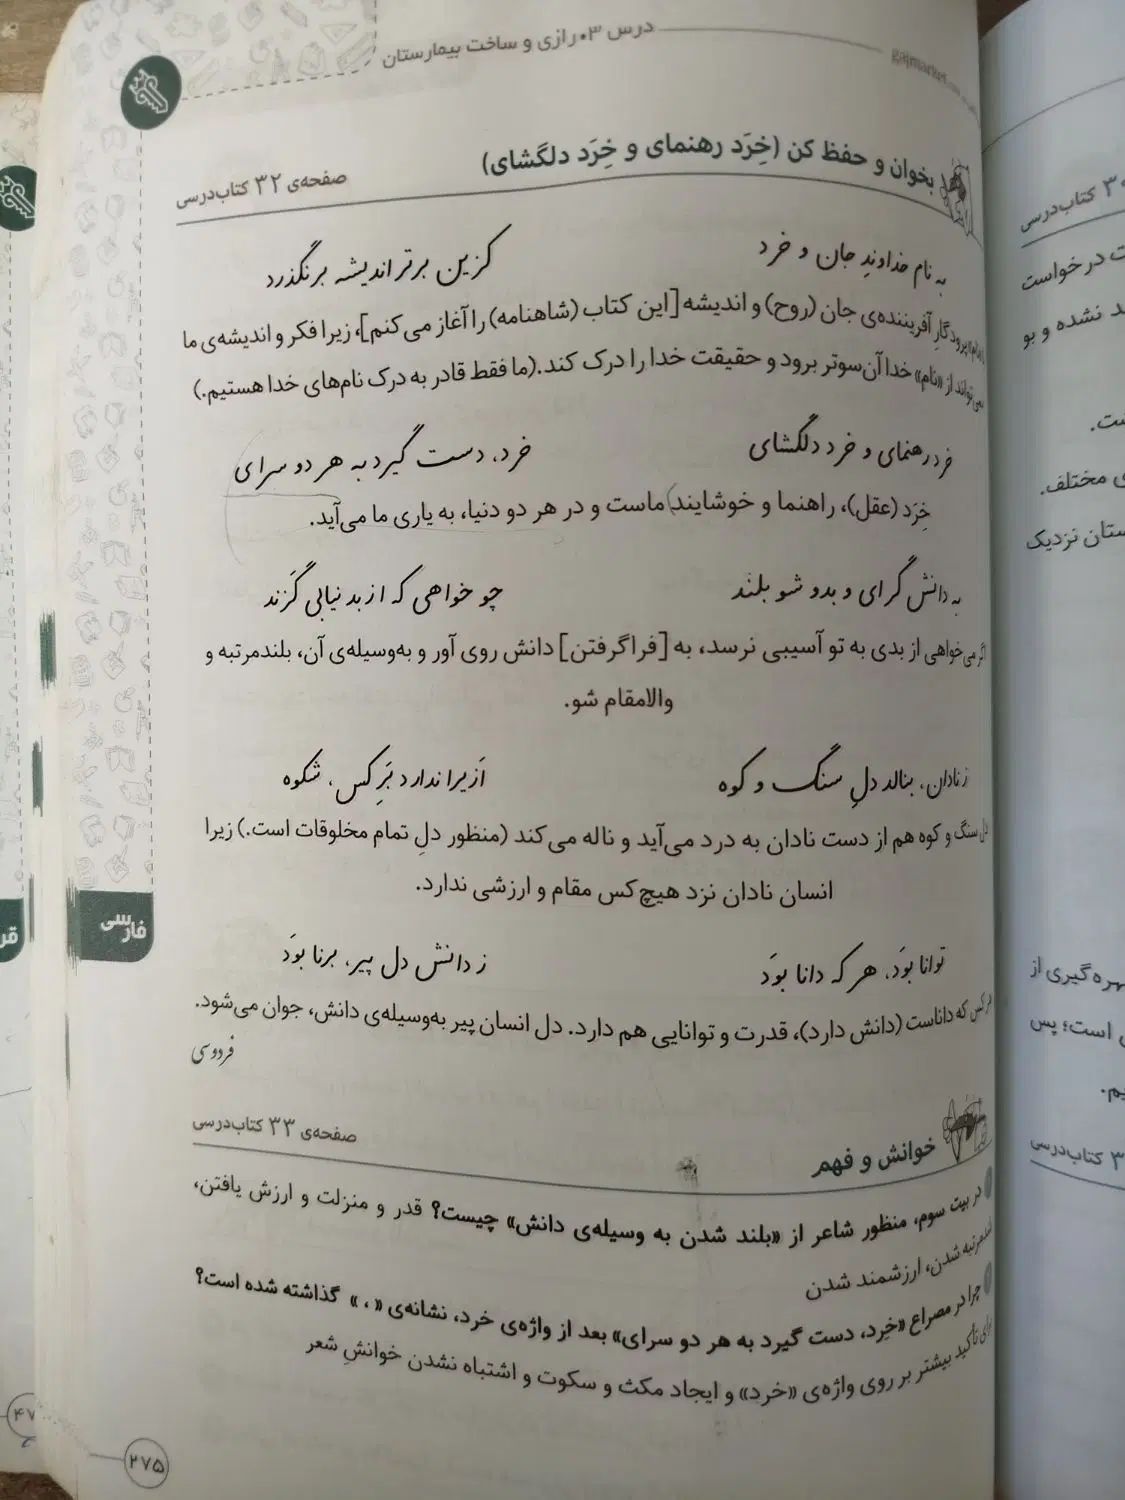 درس ۳۰ رازی و ساخت بیمارستان
gajmarket
بخوان و حفظ کن (خِرَد رهنمای و خِرَد دلگشای)
صفحه‌ی ۳۲ کتاب‌درسی
به نام خداوندِ جان و خرد
کزین برتر اندیشه برنگذرد
پرودگارِ آفریننده‌ی جان (روح) و اندیشه [این کتاب (شاهنامه) را آغاز می‌کنم]، زیرا فکر و اندیشه‌ی ما
نمی‌تواند از «نام» خدا آن‌سوتر برود و حقیقت خدا را درک کند.(ما فقط قادر به درک نام‌های خدا هستیم.)
خرد رهنمای و خرد دلگشای
خرد، دست گیرد به هر دو سرای
خِرَد (عقل)، راهنما و خوشایند ماست و در هر دو دنیا، به یاری ما می‌آید.
به دانش گرای و بدو شو بلند
چو خواهی که از بد نیابی گَزند
اگر می‌خواهی از بدی به تو آسیبی نرسد، به [فراگرفتن] دانش روی آور و به‌وسیله‌ی آن، بلندمرتبه و
والامقام شو.
ز نادان، بنالد دلِ سنگ و کوه
اَزیرا ندارد بَرِ کس، شکوه
دل سنگ و کوه هم از دست نادان به درد می‌آید و ناله می‌کند (منظور دلِ تمام مخلوقات است.) زیرا
انسان نادان نزد هیچ‌کس مقام و ارزشی ندارد.
توانا بوَد، هر که دانا بوَد
ز دانش دل پیر، برنا بوَد
هر کس که داناست (دانش دارد)، قدرت و توانایی هم دارد. دل انسان پیر به‌وسیله‌ی دانش، جوان می‌شود.
فردوسی
خوانش و فهم
صفحه‌ی ۳۳ کتاب‌درسی
در بیت سوم، منظور شاعر از «بلند شدن به وسیله‌ی دانش» چیست؟ قدر و منزلت و ارزش یافتن،
بلندمرتبه شدن، ارزشمند شدن
چرا در مصراع «خِرد، دست گیرد به هر دو سرای» بعد از واژه‌ی خرد، نشانه‌ی « ، » گذاشته شده است؟
برای تأکید بیشتر بر روی واژه‌ی «خرد» و ایجاد مکث و سکوت و اشتباه نشدن خوانشِ شعر
۲۷۵
فارسی
قر
۴۷
کتاب‌درسی
ت درخواست
د نشده و بو
ست.
ی مختلف.
ستان نزدیک
بهره‌گیری از
است؛ پس
یم.
کتاب‌درسی